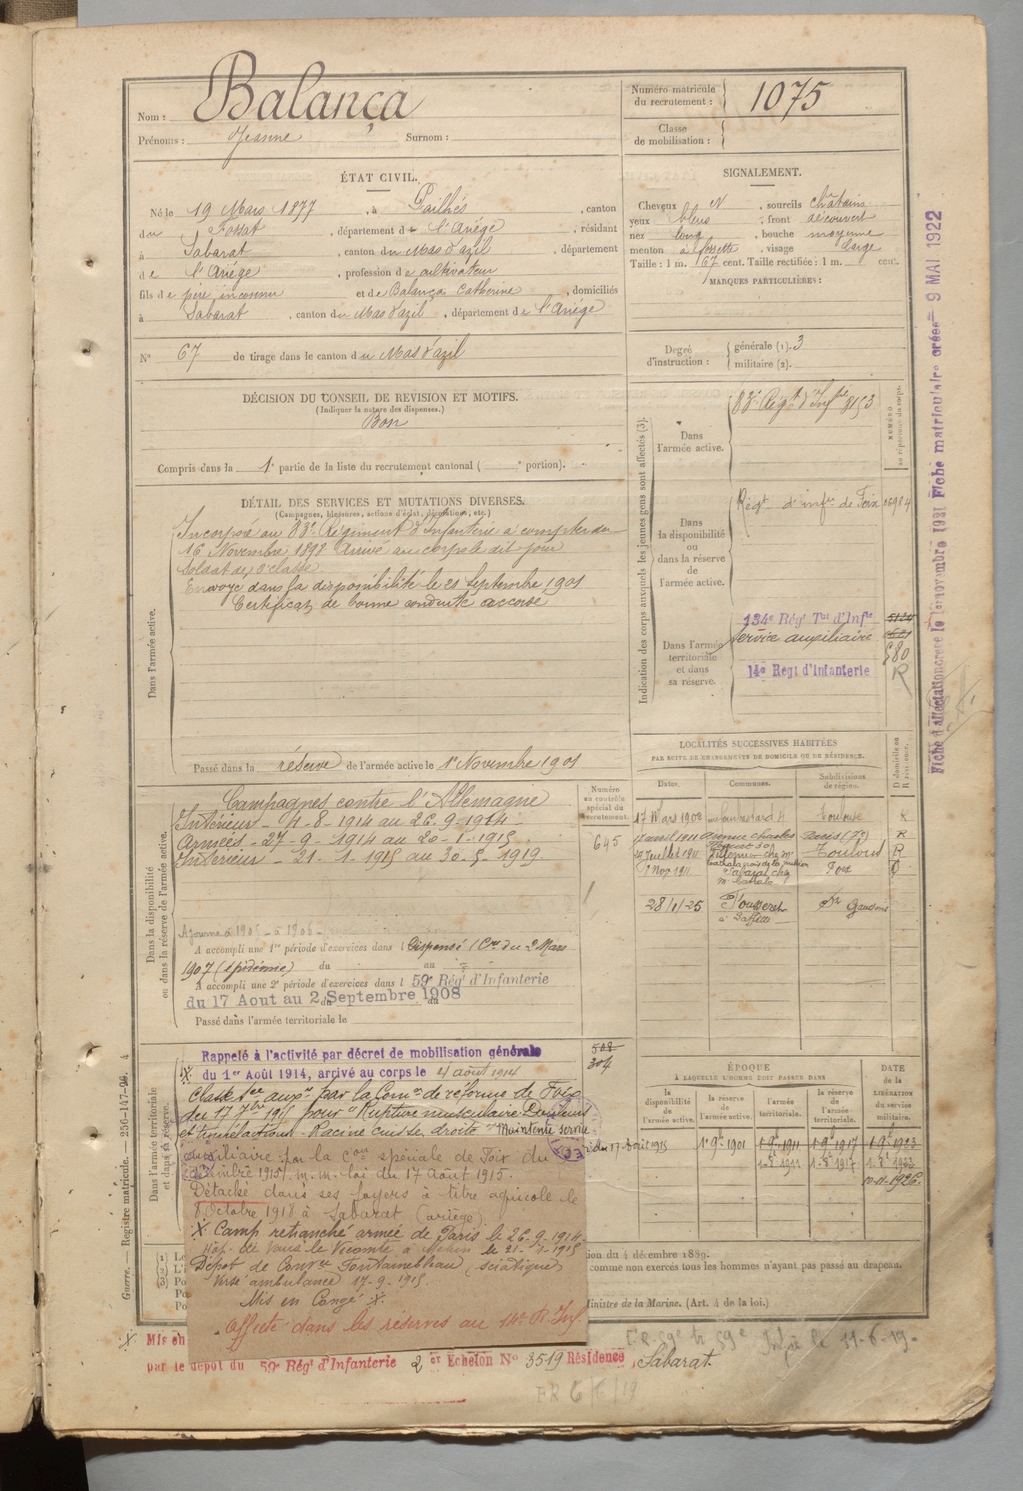 Nom : Balança
Prénoms : Jeanne Surnom :
Numéro matricule du recrutement : 1075
Classe de mobilisation :
ÉTAT CIVIL.
Né le 19 Mars 1877, à Pailhès, canton
du Fossat, département de l'Ariège, résidant
à Sabarat, canton du Mas d'azil, département
de l'Ariège, profession de cultivateur
fils de père inconnu et de Balança Catherine, domiciliés
à Sabarat, canton du Mas d'azil, département de l'Ariège
N° 67 de tirage dans le canton du Mas d'azil
SIGNALEMENT.
Cheveux N, sourcils châtains
yeux bleus, front découvert
nez long, bouche moyenne
menton à fossette, visage large
Taille : 1 m. 67 cent. Taille rectifiée : 1 m. cent.
MARQUES PARTICULIÈRES :
Degré d'instruction : générale (1). 3
militaire (2).
DÉCISION DU CONSEIL DE REVISION ET MOTIFS.
(Indiquer la nature des dispenses.)
Bon
Compris dans la 1e partie de la liste du recrutement cantonal ( e portion).
DÉTAIL DES SERVICES ET MUTATIONS DIVERSES.
(Campagnes, blessures, actions d'éclat, décorations, etc.)
Dans l'armée active.
Incorporé au 83e Régiment d'Infanterie à compter du
16 Novembre 1898 Arrivé au corps le dit jour
Soldat de 2e classe
Envoyé dans la disponibilité le 21 Septembre 1901
Certificat de bonne conduite accordé
Passé dans la réserve de l'armée active le 1er Novembre 1901
Indication des corps auxquels les jeunes gens sont affectés (3).
NUMÉRO au répertoire du corps.
Dans l'armée active.
83e Régt d'Infie 8153
Dans la disponibilité ou dans la réserve de l'armée active.
Régt d'infie de Foix
Dans l'armée territoriale et dans sa réserve.
134e Rég Tal d'Infie 5134
Service auxiliaire
580
14e Régt d'Infanterie R
Fiche d'affectation créée le 1er novembre 1921 Fiche matriculaire créée 9 MAI 1922
LOCALITÉS SUCCESSIVES HABITÉES
PAR SUITE DE CHANGEMENTS DE DOMICILE OU DE RÉSIDENCE.
Dates. Communes. Subdivisions de région. D domicile ou R résidence.
17 Mars 1902 Toulouse R
7 avril 1911 Avenue Charles Paris (7e) R
19 Juillet 1911 Toulouse R
7 Nov 1911 Sabarat chez Foix D
28/1/25 St Gaudens
Dans la disponibilité ou dans la réserve de l'armée active.
Numéro au contrôle spécial du recrutement.
645
Campagnes contre l'Allemagne
Intérieur - 4-8-1914 au 26-9-1914
Armées - 27-9-1914 au 20-1-1915
Intérieur - 21-1-1915 au 30-5-1919
Ajourné à 1905 - à 1906
A accompli une 1re période d'exercices dans l Dispensé (Cre du 2 Mars
1907 (épidémie) du au
A accompli une 2e période d'exercices dans l 59e Régt d'Infanterie
du 17 Aout au 2 Septembre 1908
Passé dans l'armée territoriale le
Dans l'armée territoriale et dans sa réserve.
Rappelé à l'activité par décret de mobilisation générale
du 1er Août 1914, arrivé au corps le 4 août 1914
508
304
Classé Sce auxre par la Comon de réforme de Foix
du 17 7bre 1915 pour "Rupture musculaire Douleurs
Racine cuisse droite" Maintenu service
auxiliaire par la Con spéciale de Foix du
1915. m. m. loi du 17 août 1915.
Détaché dans ses foyers à titre agricole le
8 Octobre 1918 à Sabarat (ariège).
X Camp retranché armée de Paris le 26-9-1914
Hôp. de Vaux le Vicomte à Melun le 21-1-1915
Dépot de Convce Fontainebleau, sciatique
Versé ambulance 17-9-1915
Mis en Congé X.
Affecté dans les réserves au 14e R. Inf.
ÉPOQUE
À LAQUELLE L'HOMME DOIT PASSER DANS
la disponibilité de l'armée active. la réserve de l'armée active. l'armée territoriale. la réserve de l'armée territoriale.
DATE de la LIBÉRATION du service militaire.
1er 9e 1901 1er 9e 1911 1er 9e 1917 1er 9e 1923
10-11-1926
du 4 décembre 1889.
comme non exercés tous les hommes n'ayant pas passé au drapeau.
Ministre de la Marine. (Art. 4 de la loi.)
Guerre. — Registre matricule. — 256-147-96. 4
X Mis en
par le dépôt du 59e Régt d'Infanterie 2 er Echelon N° 3519 Résidence Sabarat.
le 11-6-19
FR 6/6/19